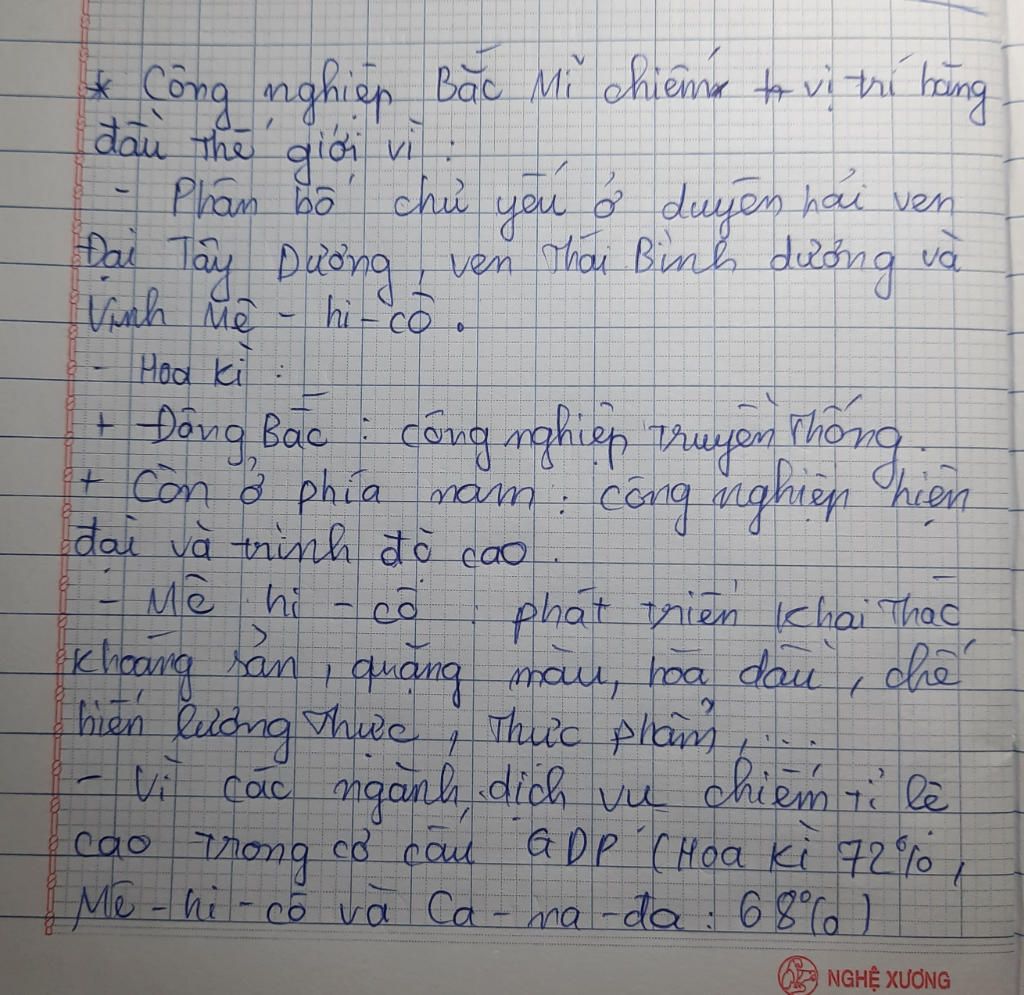 * Công nghiệp Bắc Mĩ chiếm vị trí hàng
đầu thế giới vì :
- Phân bố chủ yếu ở duyên hải ven
Đại Tây Dương, ven Thái Bình dương và
Vịnh Mê - hi - cô.
- Hoa Kì :
+ Đông Bắc : công nghiệp truyền thống.
+ Còn ở phía nam : công nghiệp hiện
đại và trình độ cao.
- Mê hi - cô : phát triển khai thác
khoáng sản, quặng màu, hóa dầu, chế
biến lương thực, thực phẩm, ...
- Vì các ngành dịch vụ chiếm tỉ lệ
cao trong cơ cấu GDP (Hoa Kì 72%,
Mê - hi - cô và Ca - na - da : 68%)
NGHỆ XƯƠNG